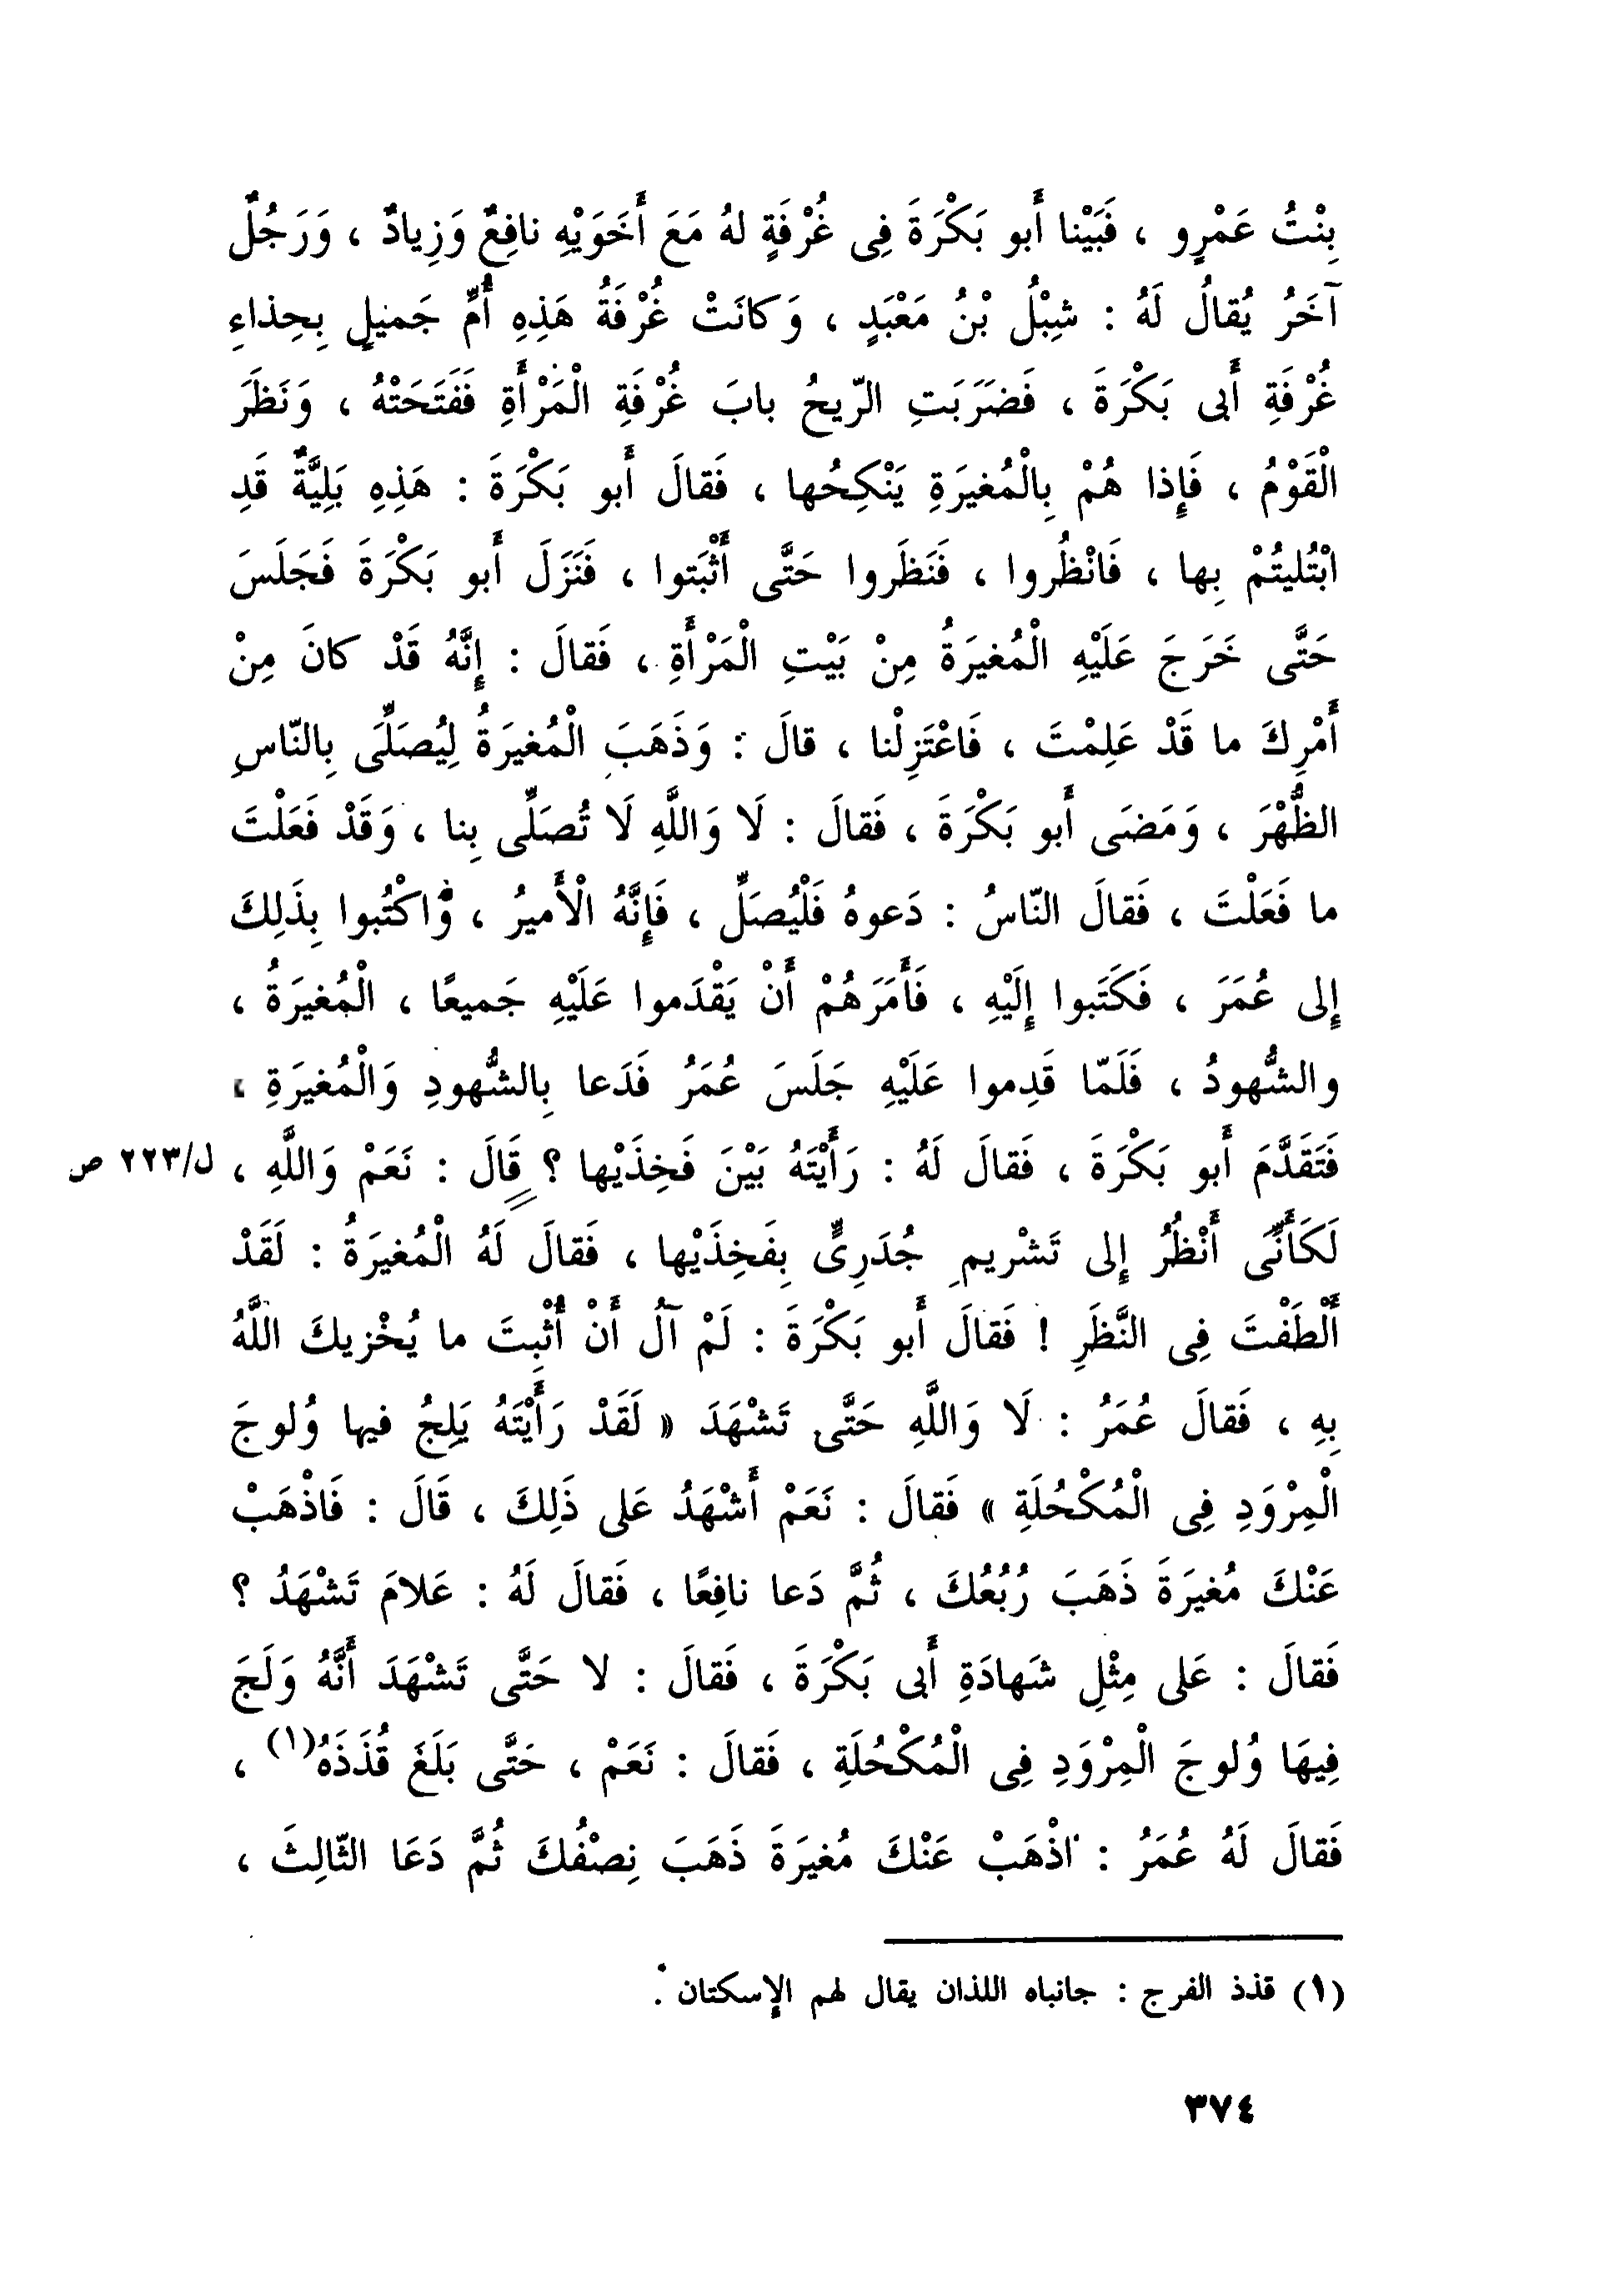 بِنْتُ عَمْرٍو ، فَبَيْنا أَبو بَكْرَةَ فِى غُرْفَةٍ لهُ مَعَ أَخَوَيْهِ نافِعٌ وَزِيادٌ ، وَرَجُلٌ
آخَرُ يُقالُ لَهُ : شِبْلُ بْنُ مَعْبَدٍ ، وَكانَتْ غُرْفَةُ هَذِهِ أُمِّ جَميلٍ بِحِذاءِ
غُرْفَةِ أَبى بَكْرَةَ ، فَضَرَبَتِ الرّيحُ بابَ غُرْفَةِ الْمَرْأَةِ فَفَتَحَتْهُ ، وَنَظَرَ
الْقَوْمُ ، فَإِذا هُمْ بِالْمُغيرَةِ يَنْكِحُها ، فَقالَ أَبو بَكْرَةَ : هَذِهِ بَلِيَّةٌ قَدِ
ابْتُليتُمْ بِها ، فَانْظُروا ، فَنَظَروا حَتَّى أَثْبَتوا ، فَنَزَلَ أَبو بَكْرَةَ فَجَلَسَ
حَتَّى خَرَجَ عَلَيْهِ الْمُغيرَةُ مِنْ بَيْتِ الْمَرْأَةِ ، فَقالَ : إِنَّهُ قَدْ كانَ مِنْ
أَمْرِكَ ما قَدْ عَلِمْتَ ، فَاعْتَزِلْنا ، قالَ : وَذَهَبَ الْمُغيرَةُ لِيُصَلِّىَ بِالنّاسِ
الظُّهْرَ ، وَمَضَى أَبو بَكْرَةَ ، فَقالَ : لَا وَاللَّهِ لَا تُصَلِّى بِنا ، وَقَدْ فَعَلْتَ
ما فَعَلْتَ ، فَقالَ النّاسُ : دَعوهُ فَلْيُصَلِّ ، فَإِنَّهُ الْأَميرُ ، وَاكْتُبوا بِذَلِكَ
إِلى عُمَرَ ، فَكَتَبوا إِلَيْهِ ، فَأَمَرَهُمْ أَنْ يَقْدَموا عَلَيْهِ جَميعًا ، الْمُغيرَةُ ،
والشُّهودُ ، فَلَمّا قَدِموا عَلَيْهِ جَلَسَ عُمَرُ فَدَعا بِالشُّهودِ وَالْمُغيرَةِ ،
فَتَقَدَّمَ أَبو بَكْرَةَ ، فَقالَ لَهُ : رَأَيْتَهُ بَيْنَ فَخِذَيْها ؟ قَالَ : نَعَمْ وَاللَّهِ ، ل/٢٢٣ ص
لَكَأَنِّى أَنْظُرُ إِلى تَشْريمِ جُدَرِىٍّ بِفَخِذَيْها ، فَقالَ لَهُ الْمُغيرَةُ : لَقَدْ
أَلْطَفْتَ فِى النَّظَرِ ! فَقالَ أَبو بَكْرَةَ : لَمْ آلُ أَنْ أُثْبِتَ ما يُخْزيكَ اللَّهُ
بِهِ ، فَقالَ عُمَرُ : لَا وَاللَّهِ حَتَّى تَشْهَدَ « لَقَدْ رَأَيْتَهُ يَلِجُ فيها وُلوجَ
الْمِرْوَدِ فِى الْمُكْحُلَةِ » فَقالَ : نَعَمْ أَشْهَدُ عَلى ذَلِكَ ، قَالَ : فَاذْهَبْ
عَنْكَ مُغيرَةَ ذَهَبَ رُبُعُكَ ، ثُمَّ دَعا نافِعًا ، فَقالَ لَهُ : عَلامَ تَشْهَدُ ؟
فَقالَ : عَلى مِثْلِ شَهادَةِ أَبى بَكْرَةَ ، فَقالَ : لا حَتَّى تَشْهَدَ أَنَّهُ وَلَجَ
فِيهَا وُلوجَ الْمِرْوَدِ فِى الْمُكْحُلَةِ ، فَقالَ : نَعَمْ ، حَتَّى بَلَغَ قُذَذَهُ(١) ،
فَقالَ لَهُ عُمَرُ : اذْهَبْ عَنْكَ مُغيرَةَ ذَهَبَ نِصْفُكَ ثُمَّ دَعَا الثّالِثَ ،
(١) قذذ الفرج : جانباه اللذان يقال لهم الإسكتان .
٣٧٤